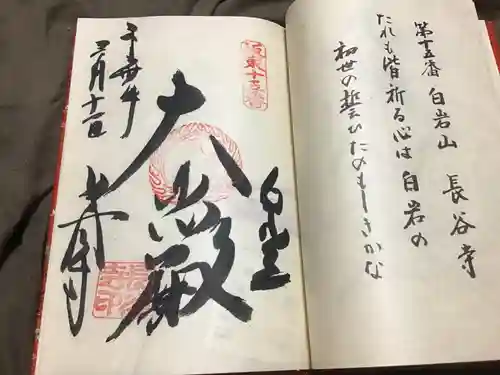 第十五番 白岩山 長谷寺
たれも皆祈る心は 白岩の
初世の誓ひたのもしきかな
坂東十五番
白岩
大悲殿
三月十一日